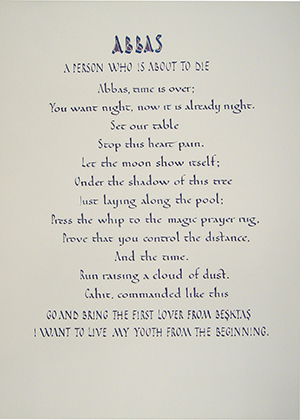 ABBAS
A PERSON WHO IS ABOUT TO DIE
Abbas, time is over;
You want night, now it is already night.
Set our table
Stop this heart pain.
Let the moon show itself;
Under the shadow of this tree
Just laying along the pool;
Press the whip to the magic prayer rug,
Prove that you control the distance,
And the time.
Run raising a cloud of dust.
Cahit, commanded like this
GO AND BRING THE FIRST LOVER FROM BEŞKTAŞ
I WANT TO LIVE MY YOUTH FROM THE BEGINNING.